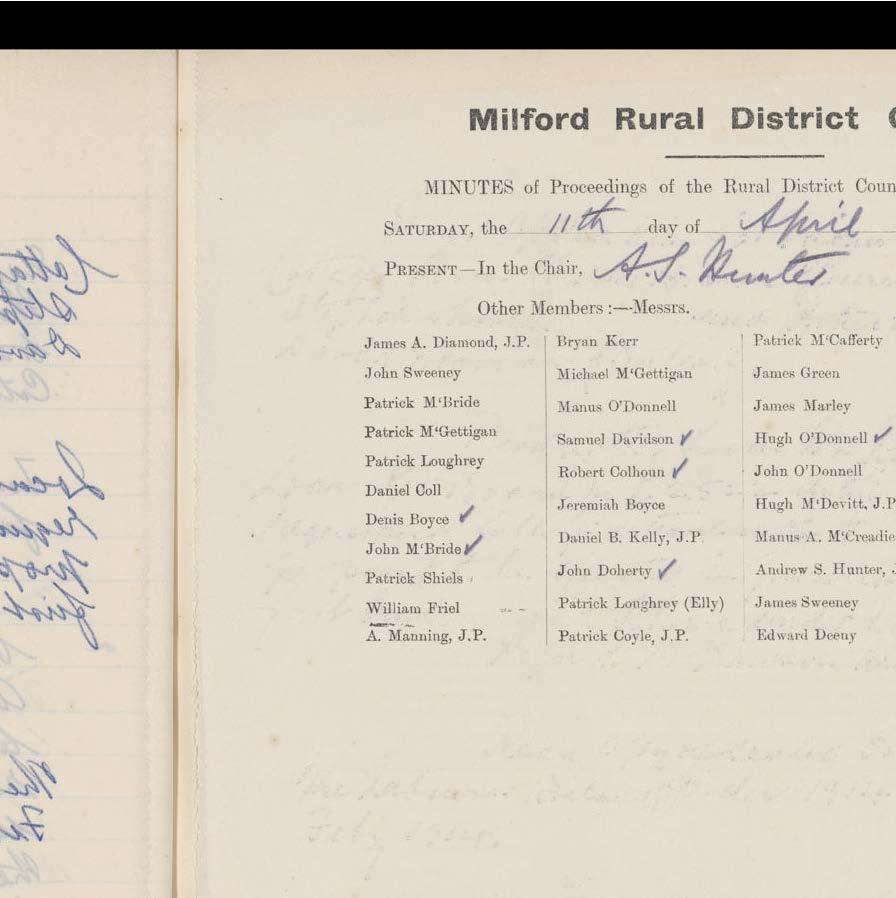 Milford Rural District C
MINUTES of Proceedings of the Rural District Coun
SATURDAY, the 11th day of April
PRESENT—In the Chair, A.S. Hunter
Other Members :—Messrs.
James A. Diamond, J.P.
John Sweeney
Patrick M‘Bride
Patrick M‘Gettigan
Patrick Loughrey
Daniel Coll
Denis Boyce ✓
John M‘Bride ✓
Patrick Shiels
William Friel
A. Manning, J.P.
Bryan Kerr
Michael M‘Gettigan
Manus O’Donnell
Samuel Davidson ✓
Robert Colhoun ✓
Jeremiah Boyce
Daniel B. Kelly, J.P.
John Doherty ✓
Patrick Loughrey (Elly)
Patrick Coyle, J.P.
Patrick M‘Cafferty
James Green
James Marley
Hugh O’Donnell ✓
John O’Donnell
Hugh M‘Devitt, J.P
Manus A. M‘Creadie
Andrew S. Hunter, J
James Sweeney
Edward Deeny